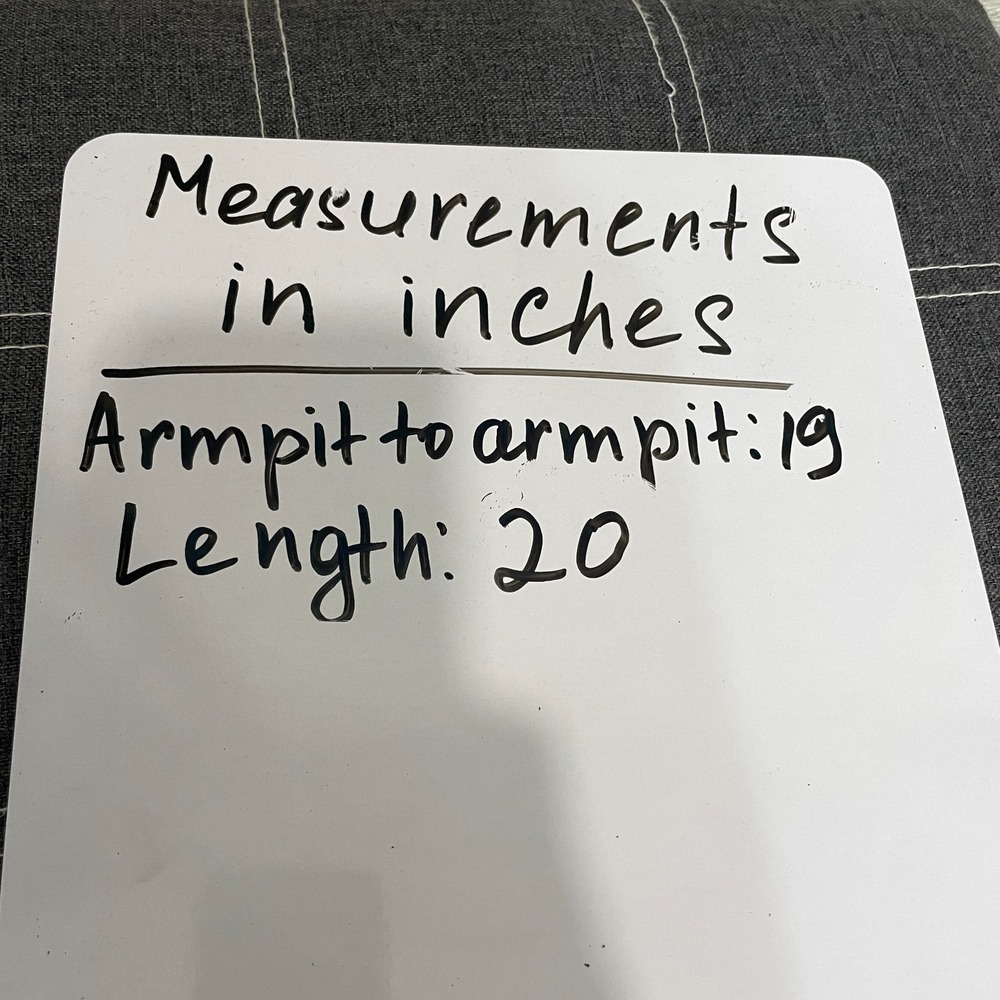 Measurements
in inches
Armpit to armpit: 19
Length: 20